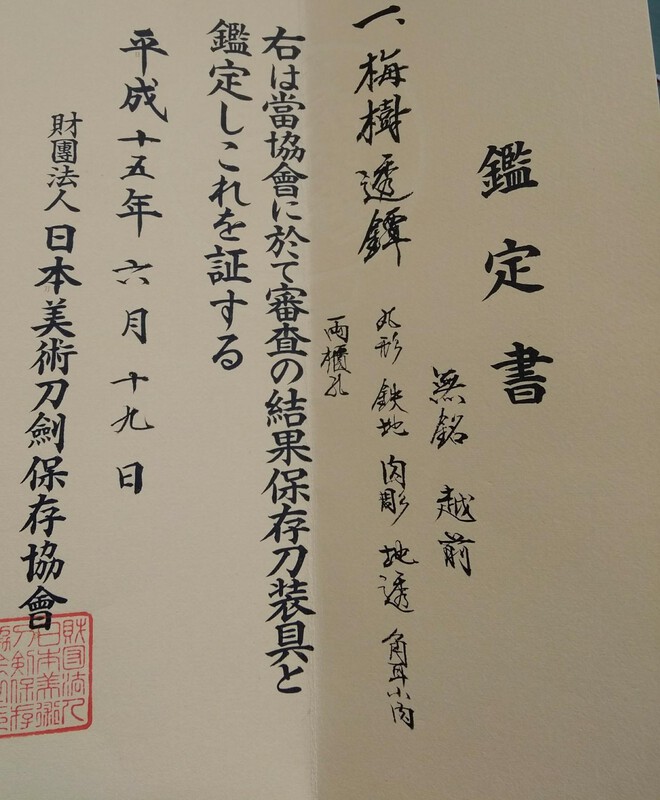 鑑定書
一、梅樹透鐔
無銘 越前
丸形 鉄地 肉彫 地透 角耳小肉
両櫃孔
右は當協會に於て審査の結果保存刀装具と
鑑定しこれを証する
平成十五年六月十九日
財團法人日本美術刀劍保存協會